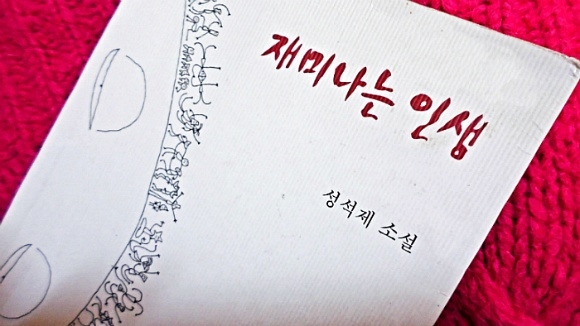 재미나는 인생
성석제 소설